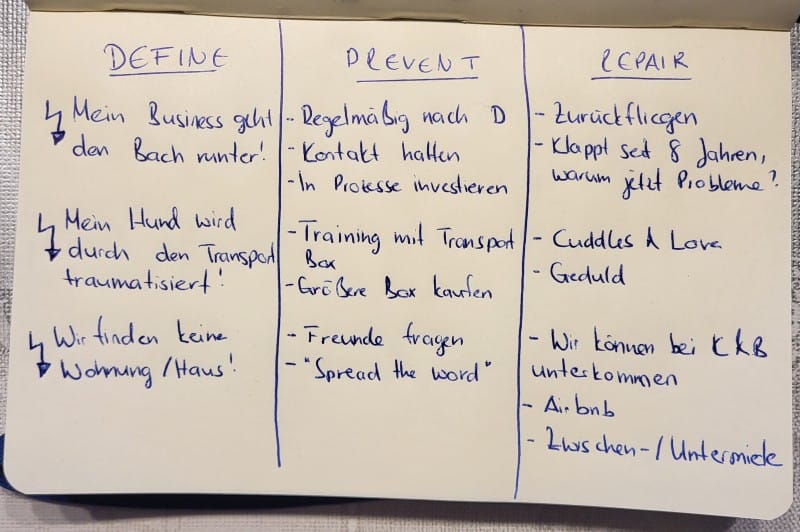 DEFINE
Mein Business geht
den Bach runter!
Mein Hund wird
durch den Transport
traumatisiert!
Wir finden keine
Wohnung/Haus!
PREVENT
- Regelmäßig nach D
- Kontakt halten
- In Prozesse investieren
- Training mit Transport
Box
- Größere Box kaufen
- Freunde fragen
- "Spread the word"
REPAIR
- Zurückfliegen
- Klappt seit 8 Jahren,
warum jetzt Probleme?
- Cuddles & Love
- Geduld
- Wir können bei C&B
unterkommen
- Airbnb
- Zwischen-/Untermiete